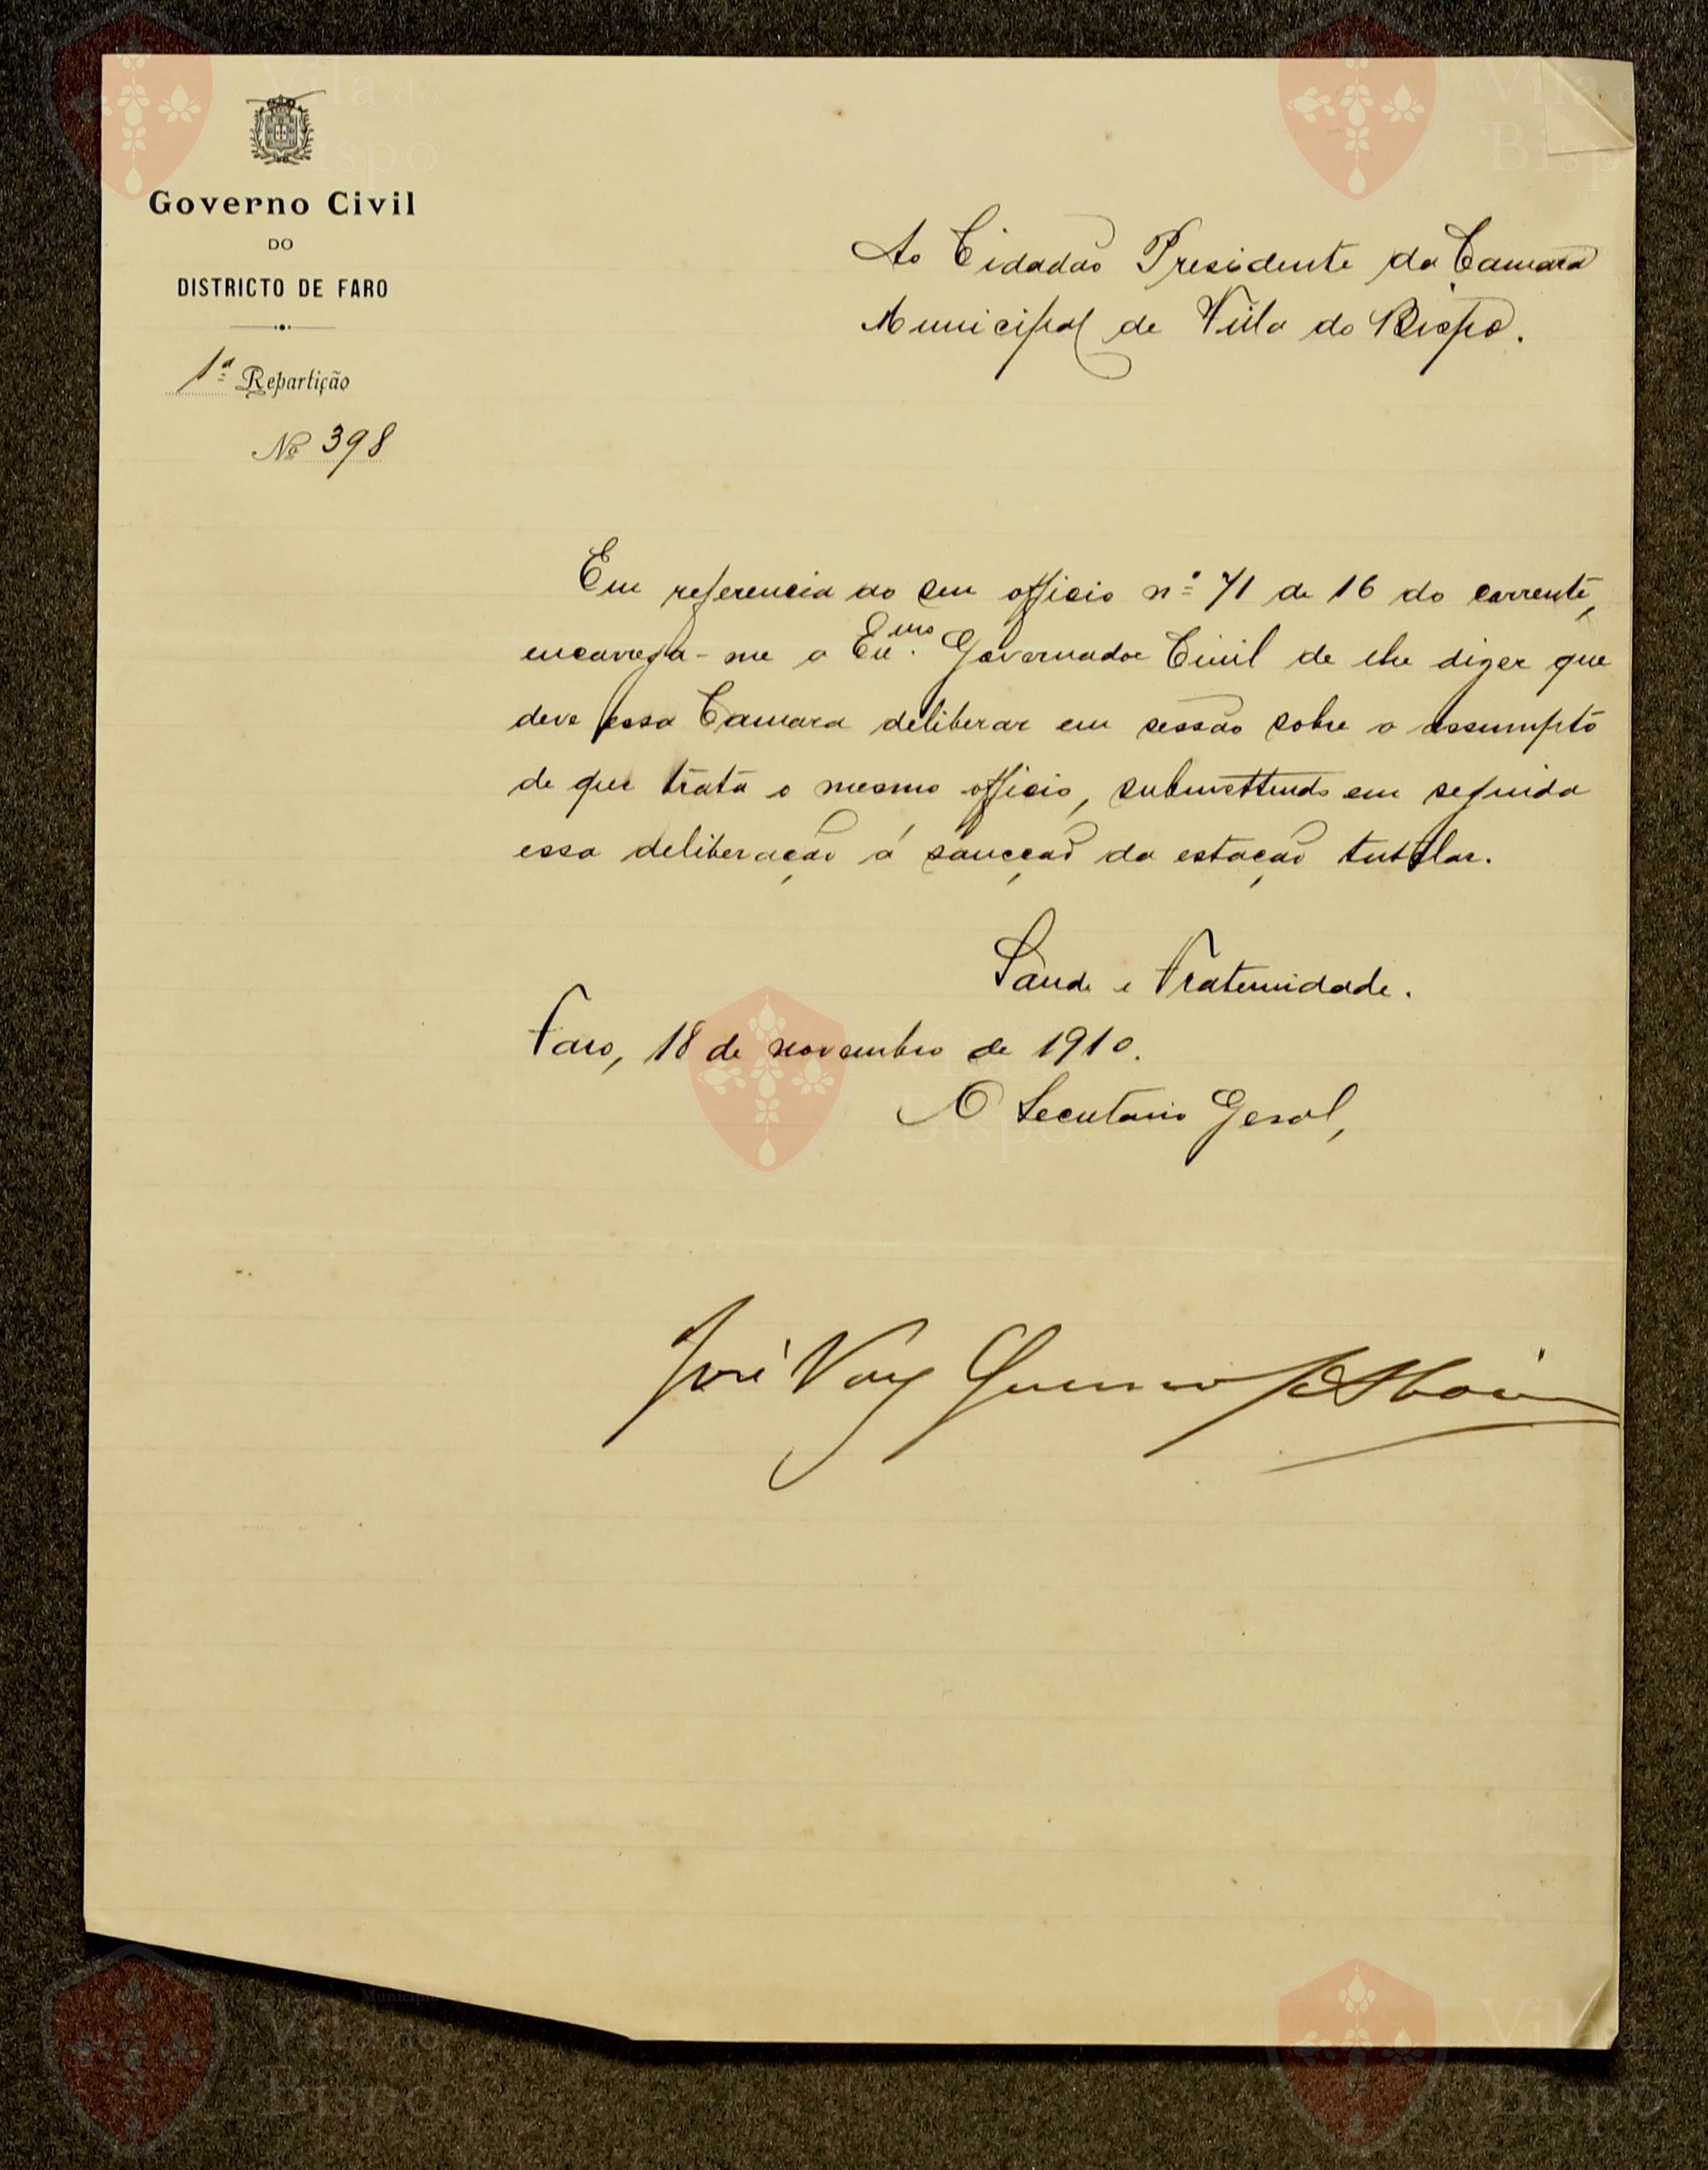 Governo Civil
DO
DISTRICTO DE FARO
1ª Repartição
Nº 398
Ao Cidadão Presidente da Camara
Municipal de Villa do Bispo.
Em referencia ao seu officio nº 71 de 16 do corrente,
encarrega-me o Exmo. Governador Civil de lhe dizer que
deve essa Camara deliberar em sessão sobre o assumpto
de que trata o mesmo officio, submettendo em seguida
essa deliberação á sancção da estação tutelar.
Saude e Fraternidade.
Faro, 18 de novembro de 1910.
O Secretario Geral,
José Vaz Guerreiro
Vila do
Bispo
Vila do
Bispo
Vila do
Bispo
Município
Vila do
Bispo
Vila do
Bispo